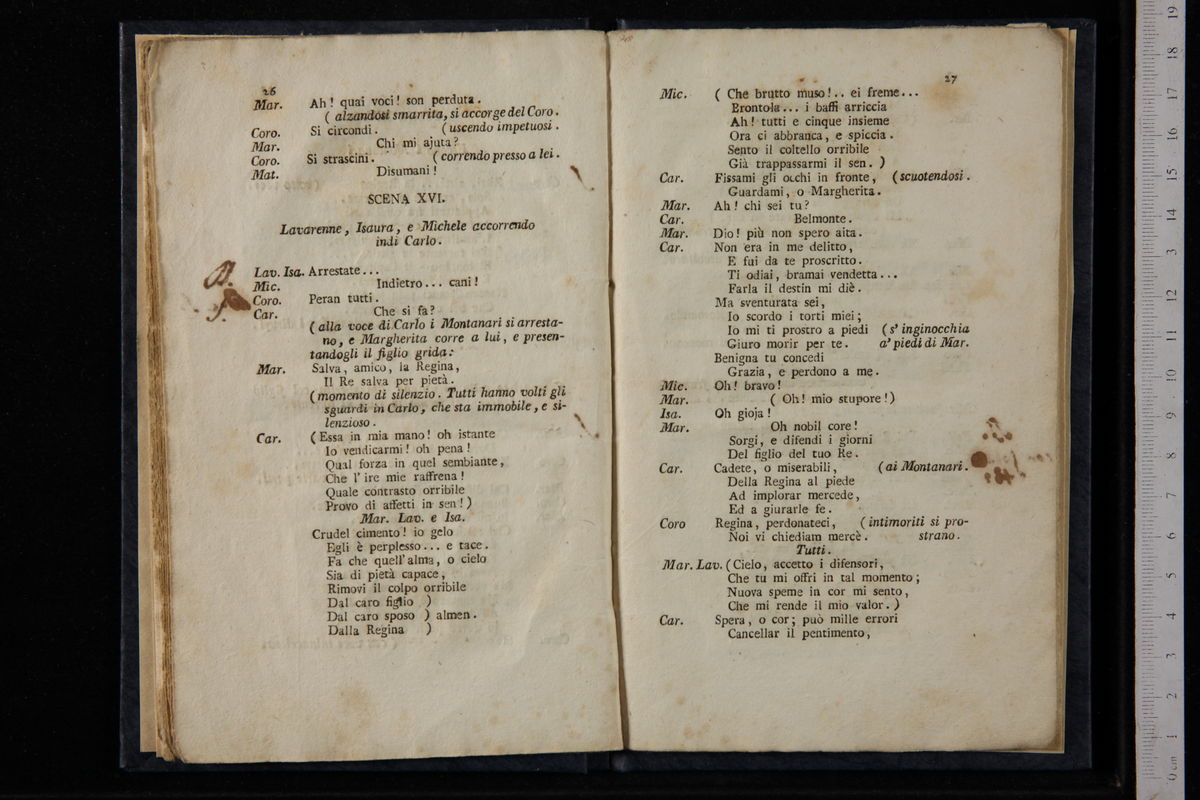 26
Mar. Ah! quai voci! son perduta.
( alzandosi smarrita, si accorge del Coro.
Coro. Si circondi. ( uscendo impetuosi.
Mar. Chi mi ajuta?
Coro. Si strascini. ( correndo presso a lei.
Mat. Disumani!
SCENA XVI.
Lavarenne, Isaura, e Michele accorrendo
indi Carlo.
Lav. Isa. Arrestate...
Mic. Indietro... cani!
Coro. Peran tutti.
Car. Che si fa?
( alla voce di Carlo i Montanari si arresta-
no, e Margherita corre a lui, e presen-
tandogli il figlio grida:
Mar. Salva, amico, la Regina,
Il Re salva per pietà.
( momento di silenzio. Tutti hanno volti gli
sguardi in Carlo, che sta immobile, e si-
lenzioso.
Car. ( Essa in mia mano! oh istante
Io vendicarmi! oh pena!
Qual forza in quel sembiante,
Che l'ire mie raffrena!
Quale contrasto orribile
Provo di affetti in sen!)
Mar. Lav. e Isa.
Crudel cimento! io gelo
Egli è perplesso... e tace.
Fa che quell'alma, o cielo
Sia di pietà capace,
Rimovi il colpo orribile
Dal caro figlio )
Dal caro sposo ) almen.
Dalla Regina )
27
Mic. ( Che brutto muso!.. ei freme...
Erontola... i baffi arriccia
Ah! tutti e cinque insieme
Ora ci abbranca, e spiccia.
Sento il coltello orribile
Già trappassarmi il sen. )
Car. Fissami gli occhi in fronte, ( scuotendosi.
Guardami, o Margherita.
Mar. Ah! chi sei tu?
Car. Belmonte.
Mar. Dio! più non spero aita.
Car. Non era in me delitto,
E fui da te proscritto.
Ti odiai, bramai vendetta...
Farla il destin mi diè.
Ma sventurata sei,
Io scordo i torti miei;
Io mi ti prostro a piedi ( s'inginocchia
Giuro morir per te. a'piedi di Mar.
Benigna tu concedi
Grazia, e perdono a me.
Mic. Oh! bravo!
Mar. ( Oh! mio stupore!)
Isa. Oh gioja!
Mar. Oh nobil core!
Sorgi, e difendi i giorni
Del figlio del tuo Re.
Car. Cadete, o miserabili, ( ai Montanari.
Della Regina al piede
Ad implorar mercede,
Ed a giurarle fe.
Coro Regina, perdonateci, ( intimoriti si pro-
Noi vi chiediam mercè. strano.
Tutti.
Mar. Lav. ( Cielo, accetto i difensori,
Che tu mi offri in tal momento;
Nuova speme in cor mi sento,
Che mi rende il mio valor. )
Car. Spera, o cor; può mille errori
Cancellar il pentimento,
0 cm 1 2 3 4 5 6 7 8 9 10 11 12 13 14 15 16 17 18 19